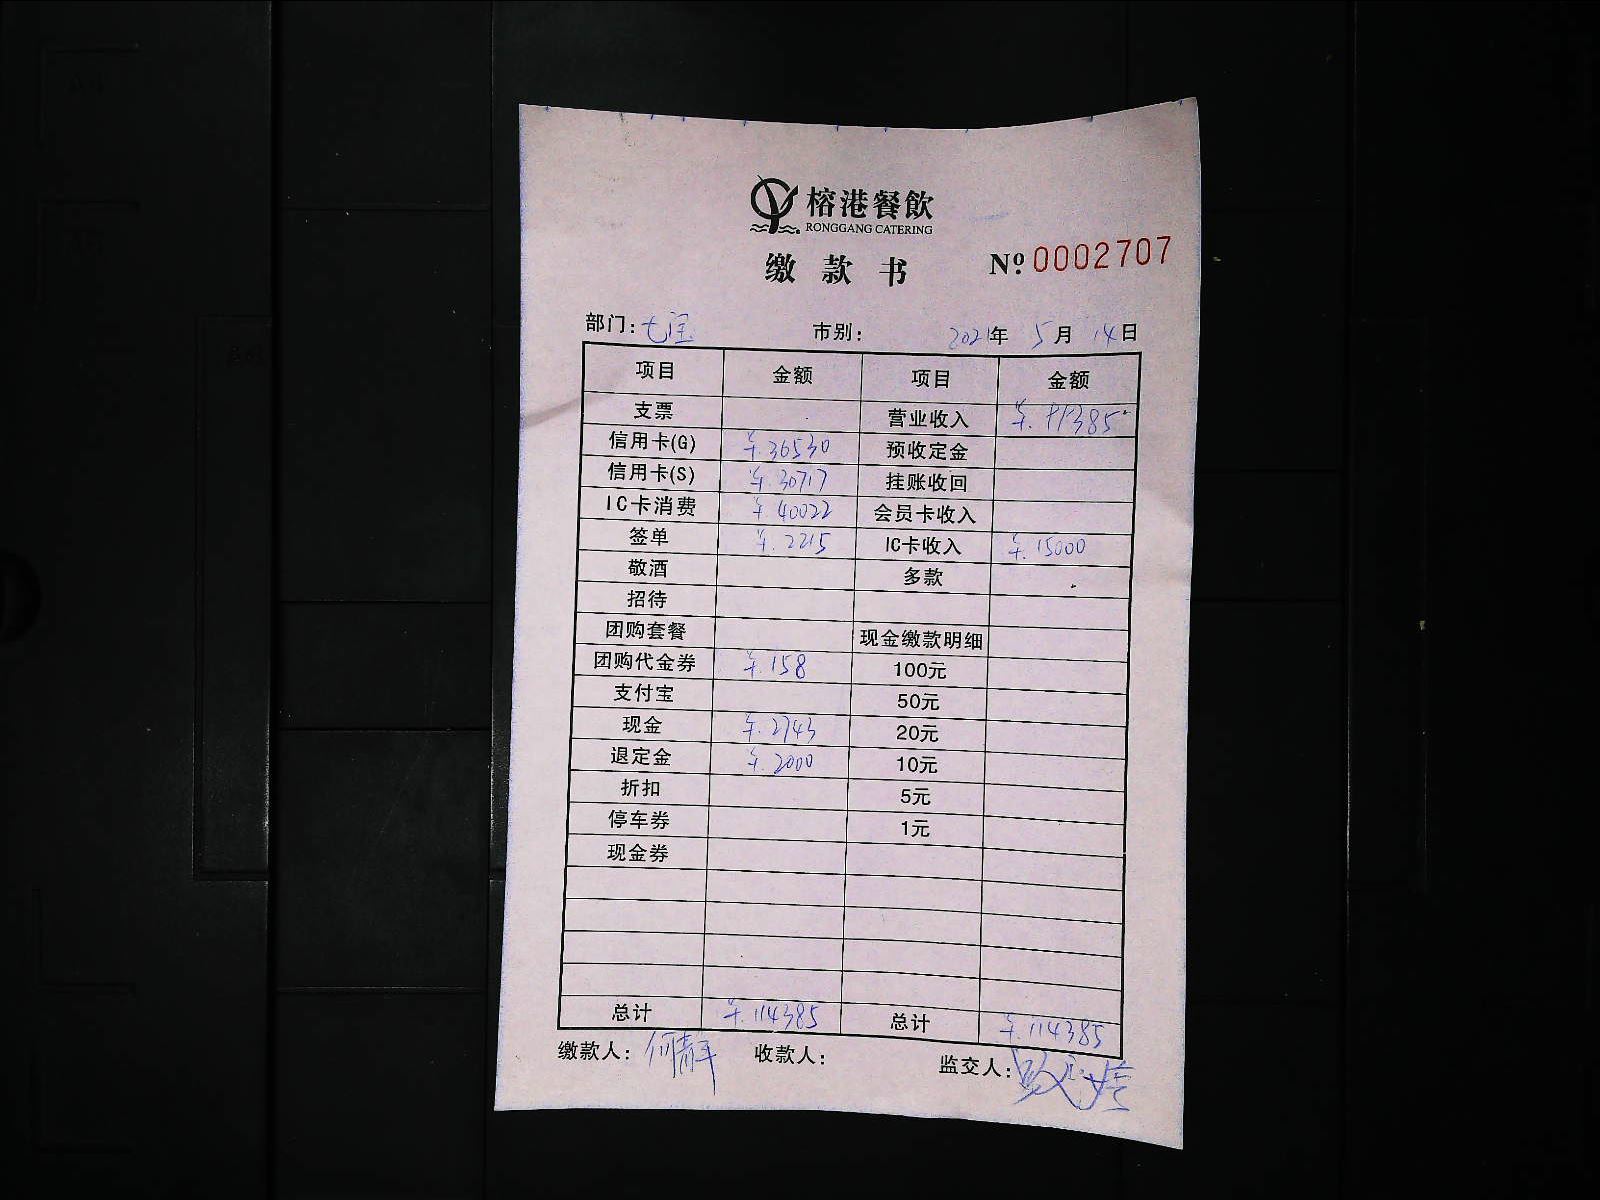 榕港餐飲
RONGGANG CATERING
缴款书 Nº 0002707
部门: 七宝 市别: 2021年 5月 14日
项目 金额 项目 金额
支票 营业收入 ¥.99385
信用卡(G) ¥.36530 预收定金
信用卡(S) ¥.30717 挂账收回
IC卡消费 ¥.40022 会员卡收入
签单 ¥.2215 IC卡收入 ¥.15000
敬酒 多款
招待
团购套餐 现金缴款明细
团购代金券 ¥.158 100元
支付宝 50元
现金 ¥.2743 20元
退定金 ¥.2000 10元
折扣 5元
停车券 1元
现金券
总计 ¥.114385 总计 ¥.114385
缴款人: 何静 收款人: 监交人: